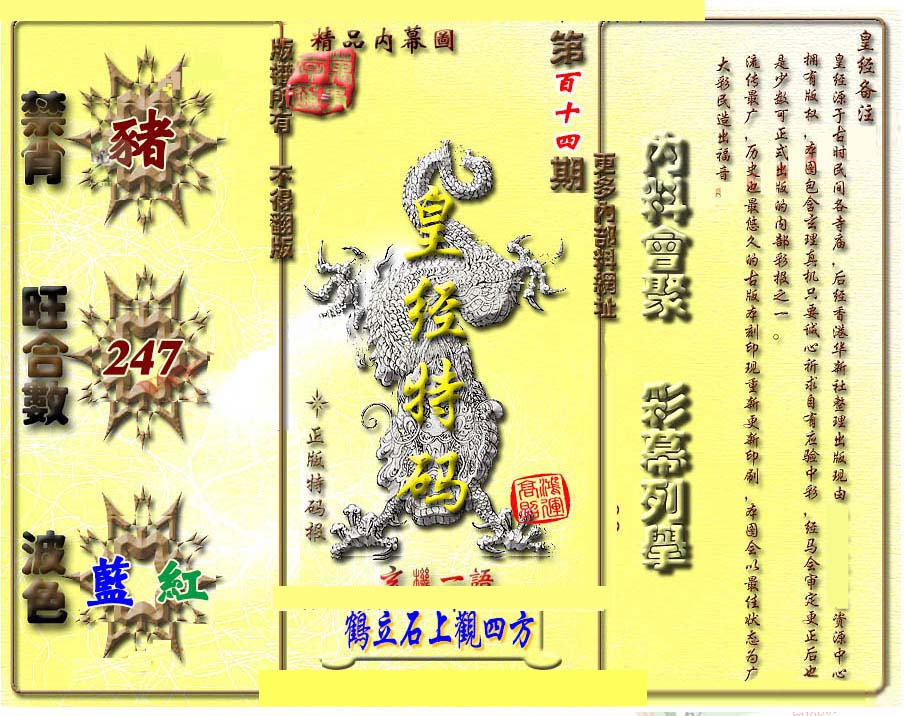 精品内幕圖
第百十四期
版權所有 不得翻版
更多內部料網址
禁肖
豬
旺合數
247
波色
藍 紅
皇经特码
正版特码报
鴻運高照
玄機一語
鶴立石上觀四方
內料會聚
彩幕列舉
皇经备注
皇经源于古时民间各寺庙，后经香港华新社整理出版现由 资源中心
拥有版权，本图包含玄理真机只要诚心祈求自有应验中彩，经马会审定更正后也
是少数可正式出版的内部彩报之一。
流传最广，历史也最悠久的古版本刻印现重新更新印刷，本图会以最佳状态为广
大彩民造出福音